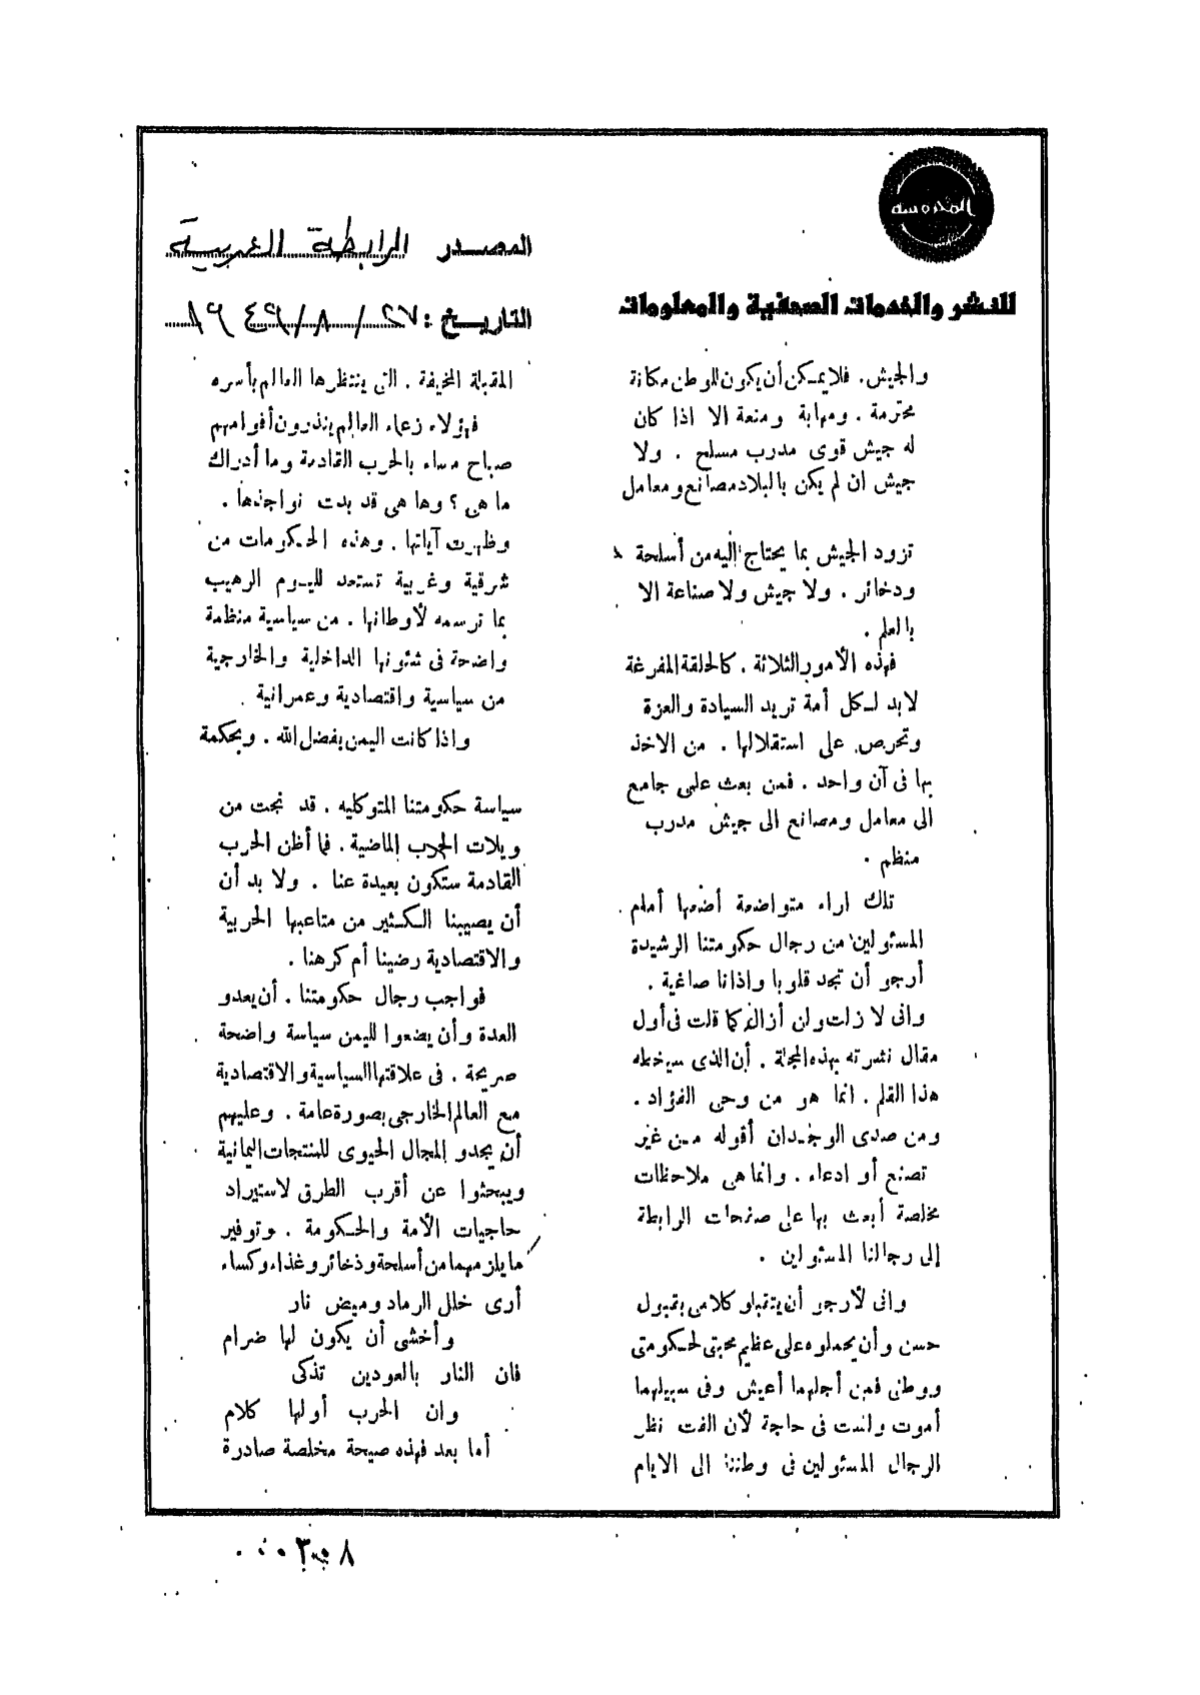 المحروسة
للنشر والخدمات الصحفية والمعلومات
المصدر الرابطة العربية
التاريخ :
والجيش . فلا يمكن أن يكون للوطن مكانة
محترمة . ومهابة ومنعة الا اذا كان
له جيش قوى مدرب مسلح . ولا
جيش ان لم يكن بالبلاد مصانع ومعامل
تزود الجيش بما يحتاج إليه من أسلحة
وذخائر . ولا جيش ولا صناعة الا
بالعلم .
فهذه الأمور الثلاثة . كالحلقة المفرغة
لابد لكل أمة تريد السيادة والعزة
وتحرص على استقلالها . من الاخذ
بها فى آن واحد . فمن بعث علمى جامع
الى معامل ومصانع الى جيش مدرب
منظم .
تلك اراء متواضعة أضعها أمام
المسئولين من رجال حكومتنا الرشيدة
أرجو أن تجد قلوبا واذانا صاغية .
وانى لا زلت ولن أزال كما قلت فى أول
مقال نشرته بهذه المجلة . أن الذى سيخطه
هذا القلم . انما هو من وحى الفؤاد .
ومن صدى الوجدان أقوله من غير
تصنع أو ادعاء . وانما هى ملاحظات
مخلصة أبعث بها على صفحات الرابطة
إلى رجالنا المسئولين .
وانى لأرجو أن يتقبلو كلامى بقبول
حسن وأن يحملوه على عظيم محبتى لحكومتى
ووطنى فمن أجلهما أعيش وفى سبيلهما
أموت ولست فى حاجة لأن الفت نظر
الرجال المسئولين فى وطننا الى الايام
المقبلة المخيفة . التى ينتظرها العالم بأسره
فهؤلاء زعماء العالم ينذرون أقوامهم
صباح مساء بالحرب القادمة وما أدراك
ما هى ؟ وها هى قد بدت نواجذها .
وظهرت آياتها . وهذه الحكومات من
شرقية وغربية تستعد لليوم الرهيب
بما ترسمه لأوطانها . من سياسية منظمة
واضحة فى شئونها الداخلية والخارجية
من سياسية واقتصادية وعمرانية .
واذا كانت اليمن بفضل الله . وبحكمة
سياسة حكومتنا المتوكليه . قد نجت من
ويلات الحرب الماضية . فما أظن الحرب
القادمة ستكون بعيدة عنا . ولا بد أن
أن يصيبنا الكثير من متاعبها الحربية
والاقتصادية رضينا أم كرهنا .
فواجب رجال حكومتنا . أن يعدو
العدة وأن يضعوا لليمن سياسة واضحة
صريحة . فى علاقتها السياسية والاقتصادية
مع العالم الخارجى بصورة عامة . وعليهم
أن يجدو المجال الحيوى للمنتجات اليمانية
ويبحثوا عن أقرب الطرق لاستيراد
حاجيات الأمة والحكومة . وتوفير
ما يلزمهما من أسلحة وذخائر وغذاء وكساء
أرى خلل الرماد وميض نار
وأخشى أن يكون لها ضرام
فان النار بالعودين تذكى
وان الحرب أولها كلام
أما بعد فهذه صيحة مخلصة صادرة